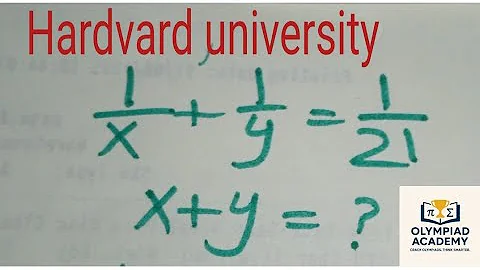 Hardvard university
1/x + 1/y = 1/21
x+y = ?
π Σ
OLYMPIAD
ACADEMY
COACH OLYMPIADS. THINK SMARTER.